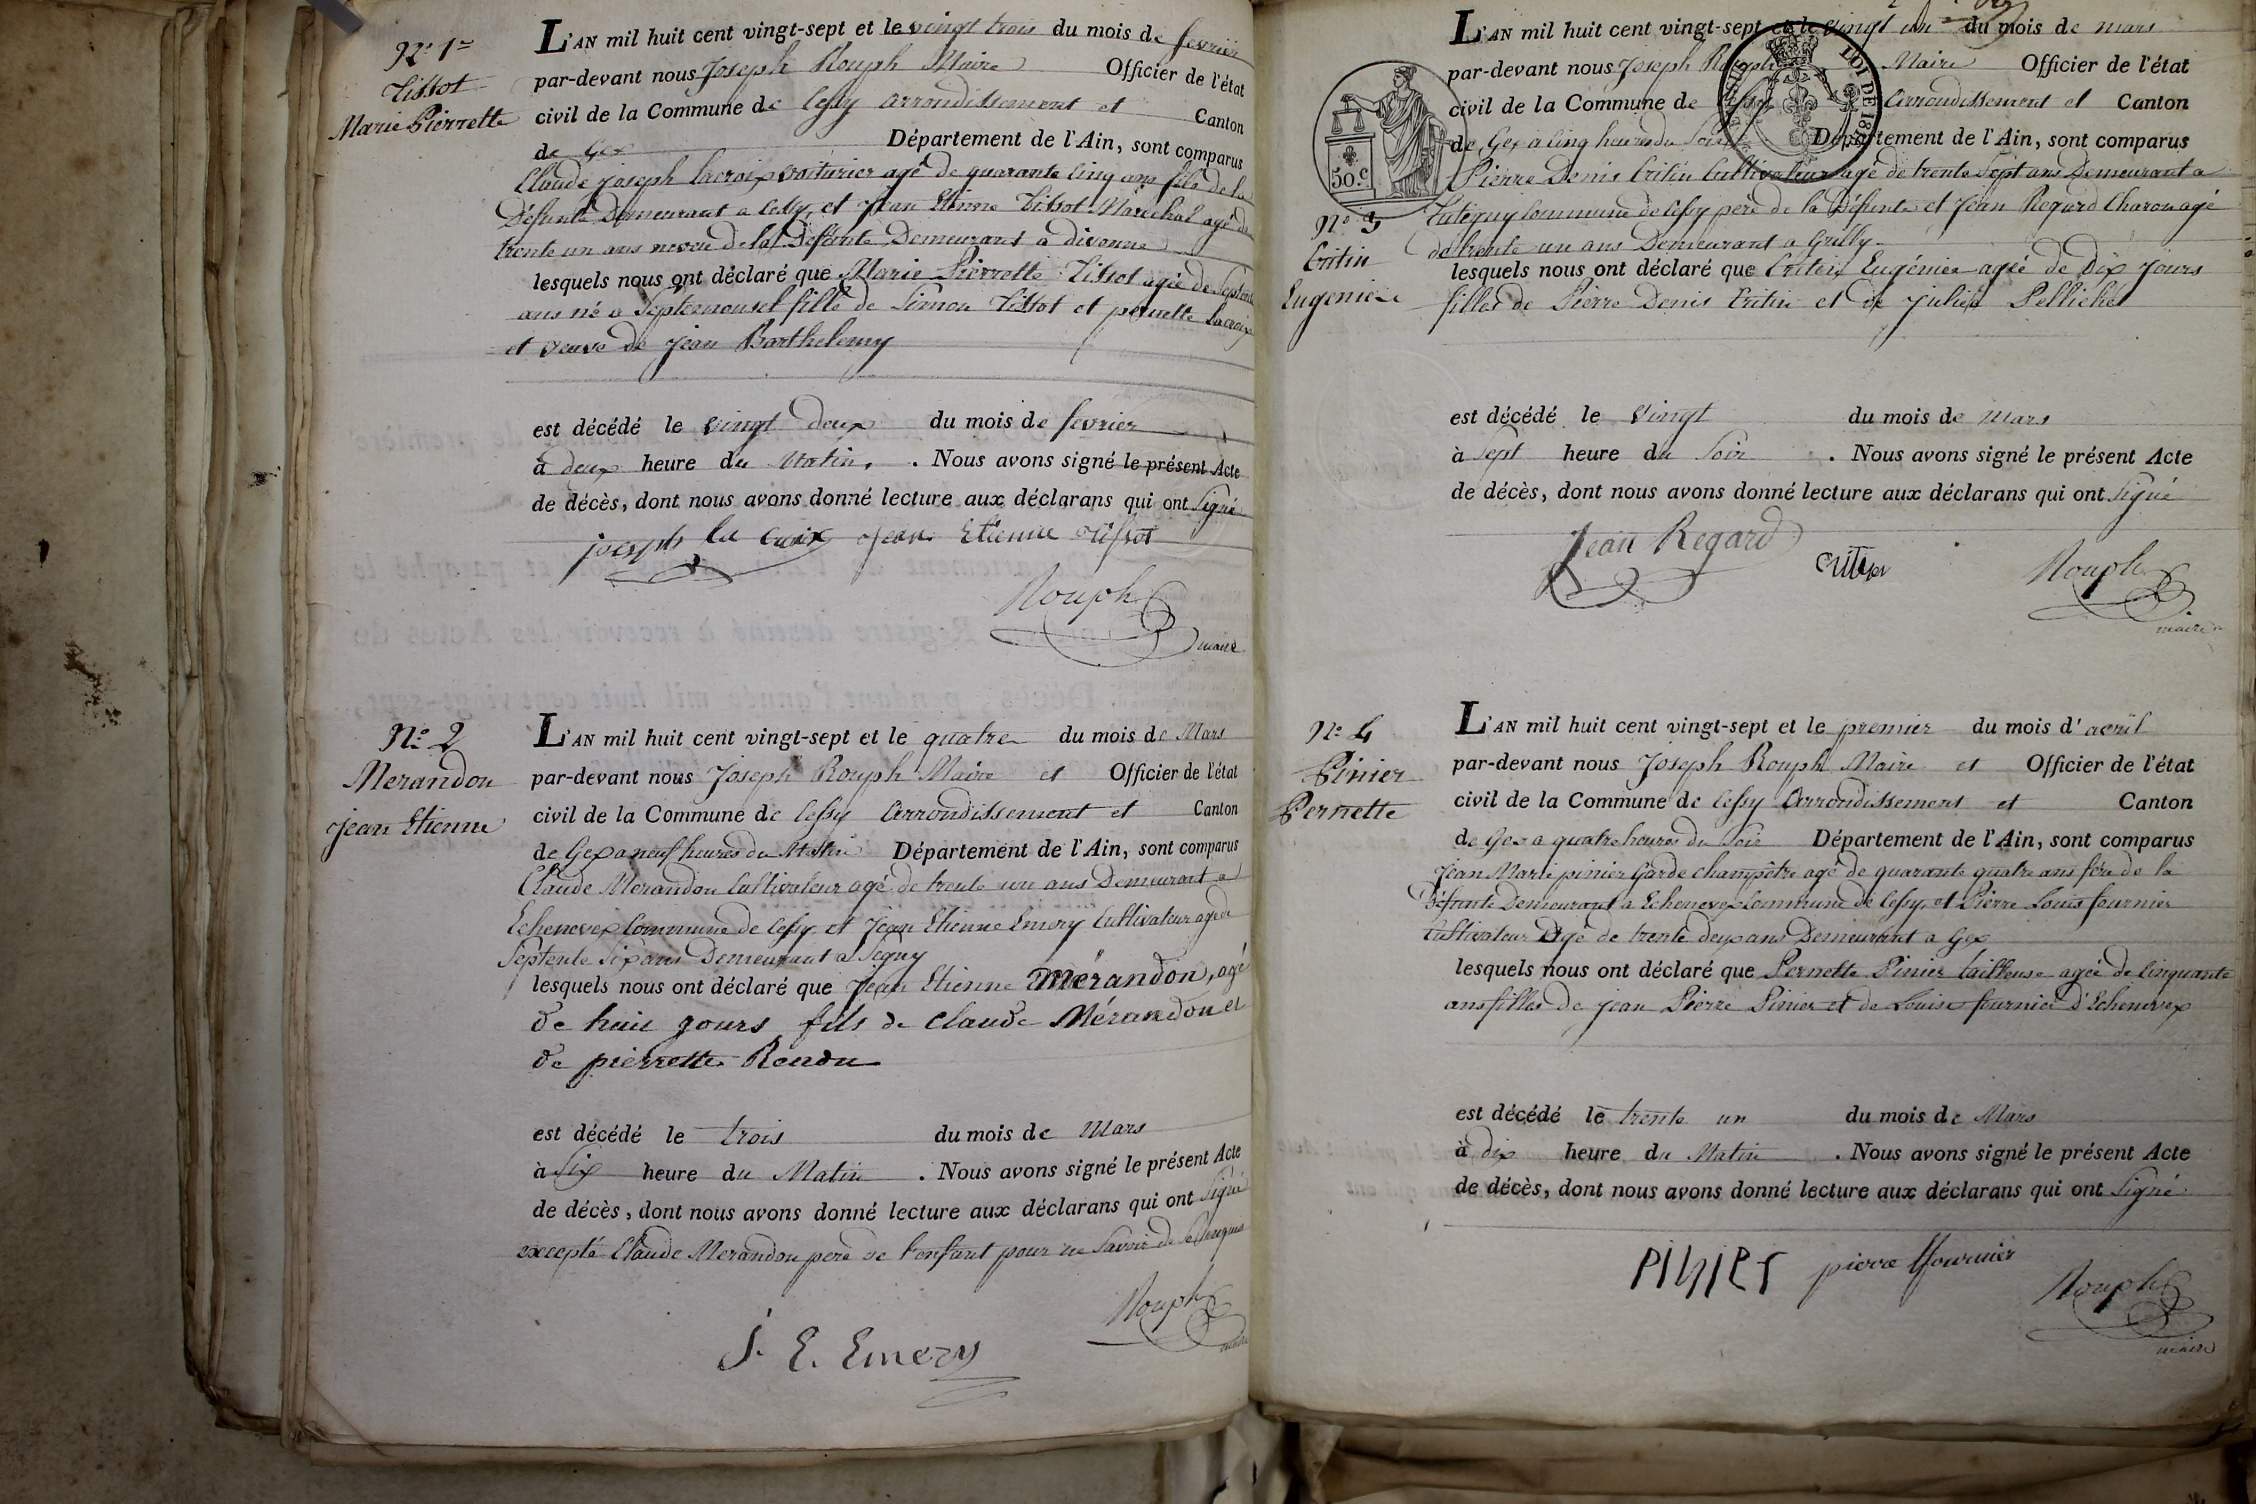 Nº 1er
Tissot
Marie Pierrette
L'AN mil huit cent vingt-sept et le vingt trois du mois de fevrier
par-devant nous Joseph Rouph Maire Officier de l'état
civil de la Commune de Cessy arrondissement et Canton
de Gex Département de l'Ain, sont comparus
Claude joseph lacroix voiturier agé de quarante cinq ans fils de la
Défunte Demeurant a Cessy, et Jean Etienne Tissot Maréchal agé de
trente un ans neveu de la Défunte Demeurant a divonne
lesquels nous ont déclaré que Marie Pierrette Tissot agée de Septente
ans né a Septemoncel fille de Simon Tissot et pernette lacroix
et veuve de Jean Barthelemy
est décédé le vingt deux du mois de fevrier
à deux heure du Matin. . Nous avons signé le présent Acte
de décès, dont nous avons donné lecture aux déclarans qui ont Signé
joseph la Croix Jean Etienne Tissot
Rouph
maire
Nº 2
Merandon
jean Etienne
L'AN mil huit cent vingt-sept et le quatre du mois de Mars
par-devant nous Joseph Rouph Maire et Officier de l'état
civil de la Commune de Cessy Arrondissement et Canton
de Gex a neuf heures du Matin Département de l'Ain, sont comparus
Claude Merandon Cultivateur agé de trente un ans Demeurant a
Echenevex Commune de Cessy et Jean Etienne Emery Cultivateur agé de
Septente Six ans Demeurant a Segny
lesquels nous ont déclaré que Jean Etienne Mérandon, agé
de huit jours fils de Claude Mérandon et
de pierrette Rendu
est décédé le trois du mois de Mars
à Six heure du Matin . Nous avons signé le présent Acte
de décès, dont nous avons donné lecture aux déclarans qui ont Signé
excepté Claude Merandon pere de l'enfant pour ne Savoir de ce enquis
Rouph
maire
J. E. Emery
L'AN mil huit cent vingt-sept et le vingt un du mois de mars
par-devant nous Joseph Rouph Maire Officier de l'état
civil de la Commune de Cessy Arrondissement et Canton
de Gex a Cinq heures du Soir Département de l'Ain, sont comparus
LOI DE 18
50.c
Pierre Denis Critin Cultivateur agé de trente Sept ans Demeurant a
Tutegny Commune de Cessy pere de la Défunte et Jean Regard Charon agé
de trente un ans Demeurant a Grilly
Nº 3
Critin
Eugenie
lesquels nous ont déclaré que Critin Eugénie agée de Dix Jours
filles de Pierre Denis Critin et de Julie Pelliché
est décédé le vingt du mois de Mars
à Sept heure du Soir . Nous avons signé le présent Acte
de décès, dont nous avons donné lecture aux déclarans qui ont Signé
Jean Regard Critin Rouph
maire
Nº 4
Pinier
Pernette
L'AN mil huit cent vingt-sept et le premier du mois d'avril
par-devant nous Joseph Rouph Maire et Officier de l'état
civil de la Commune de Cessy Arrondissement et Canton
de Gex a quatre heures du Soir Département de l'Ain, sont comparus
Jean Marie pinier Garde champêtre agé de quarante quatre ans frère de la
Défunte Demeurant a Echenevex Commune de Cessy, et Pierre Louis fournier
Cultivateur Agé de trente deux ans Demeurant a Gex
lesquels nous ont déclaré que Pernette Pinier tailleuse agée de Cinquante
ans filles de jean Pierre Pinier et de Louise fournier d'Echenevex
est décédé le trente un du mois de Mars
à dix heure du Matin . Nous avons signé le présent Acte
de décès, dont nous avons donné lecture aux déclarans qui ont Signé
Pinier pierre fournier Rouph
maire